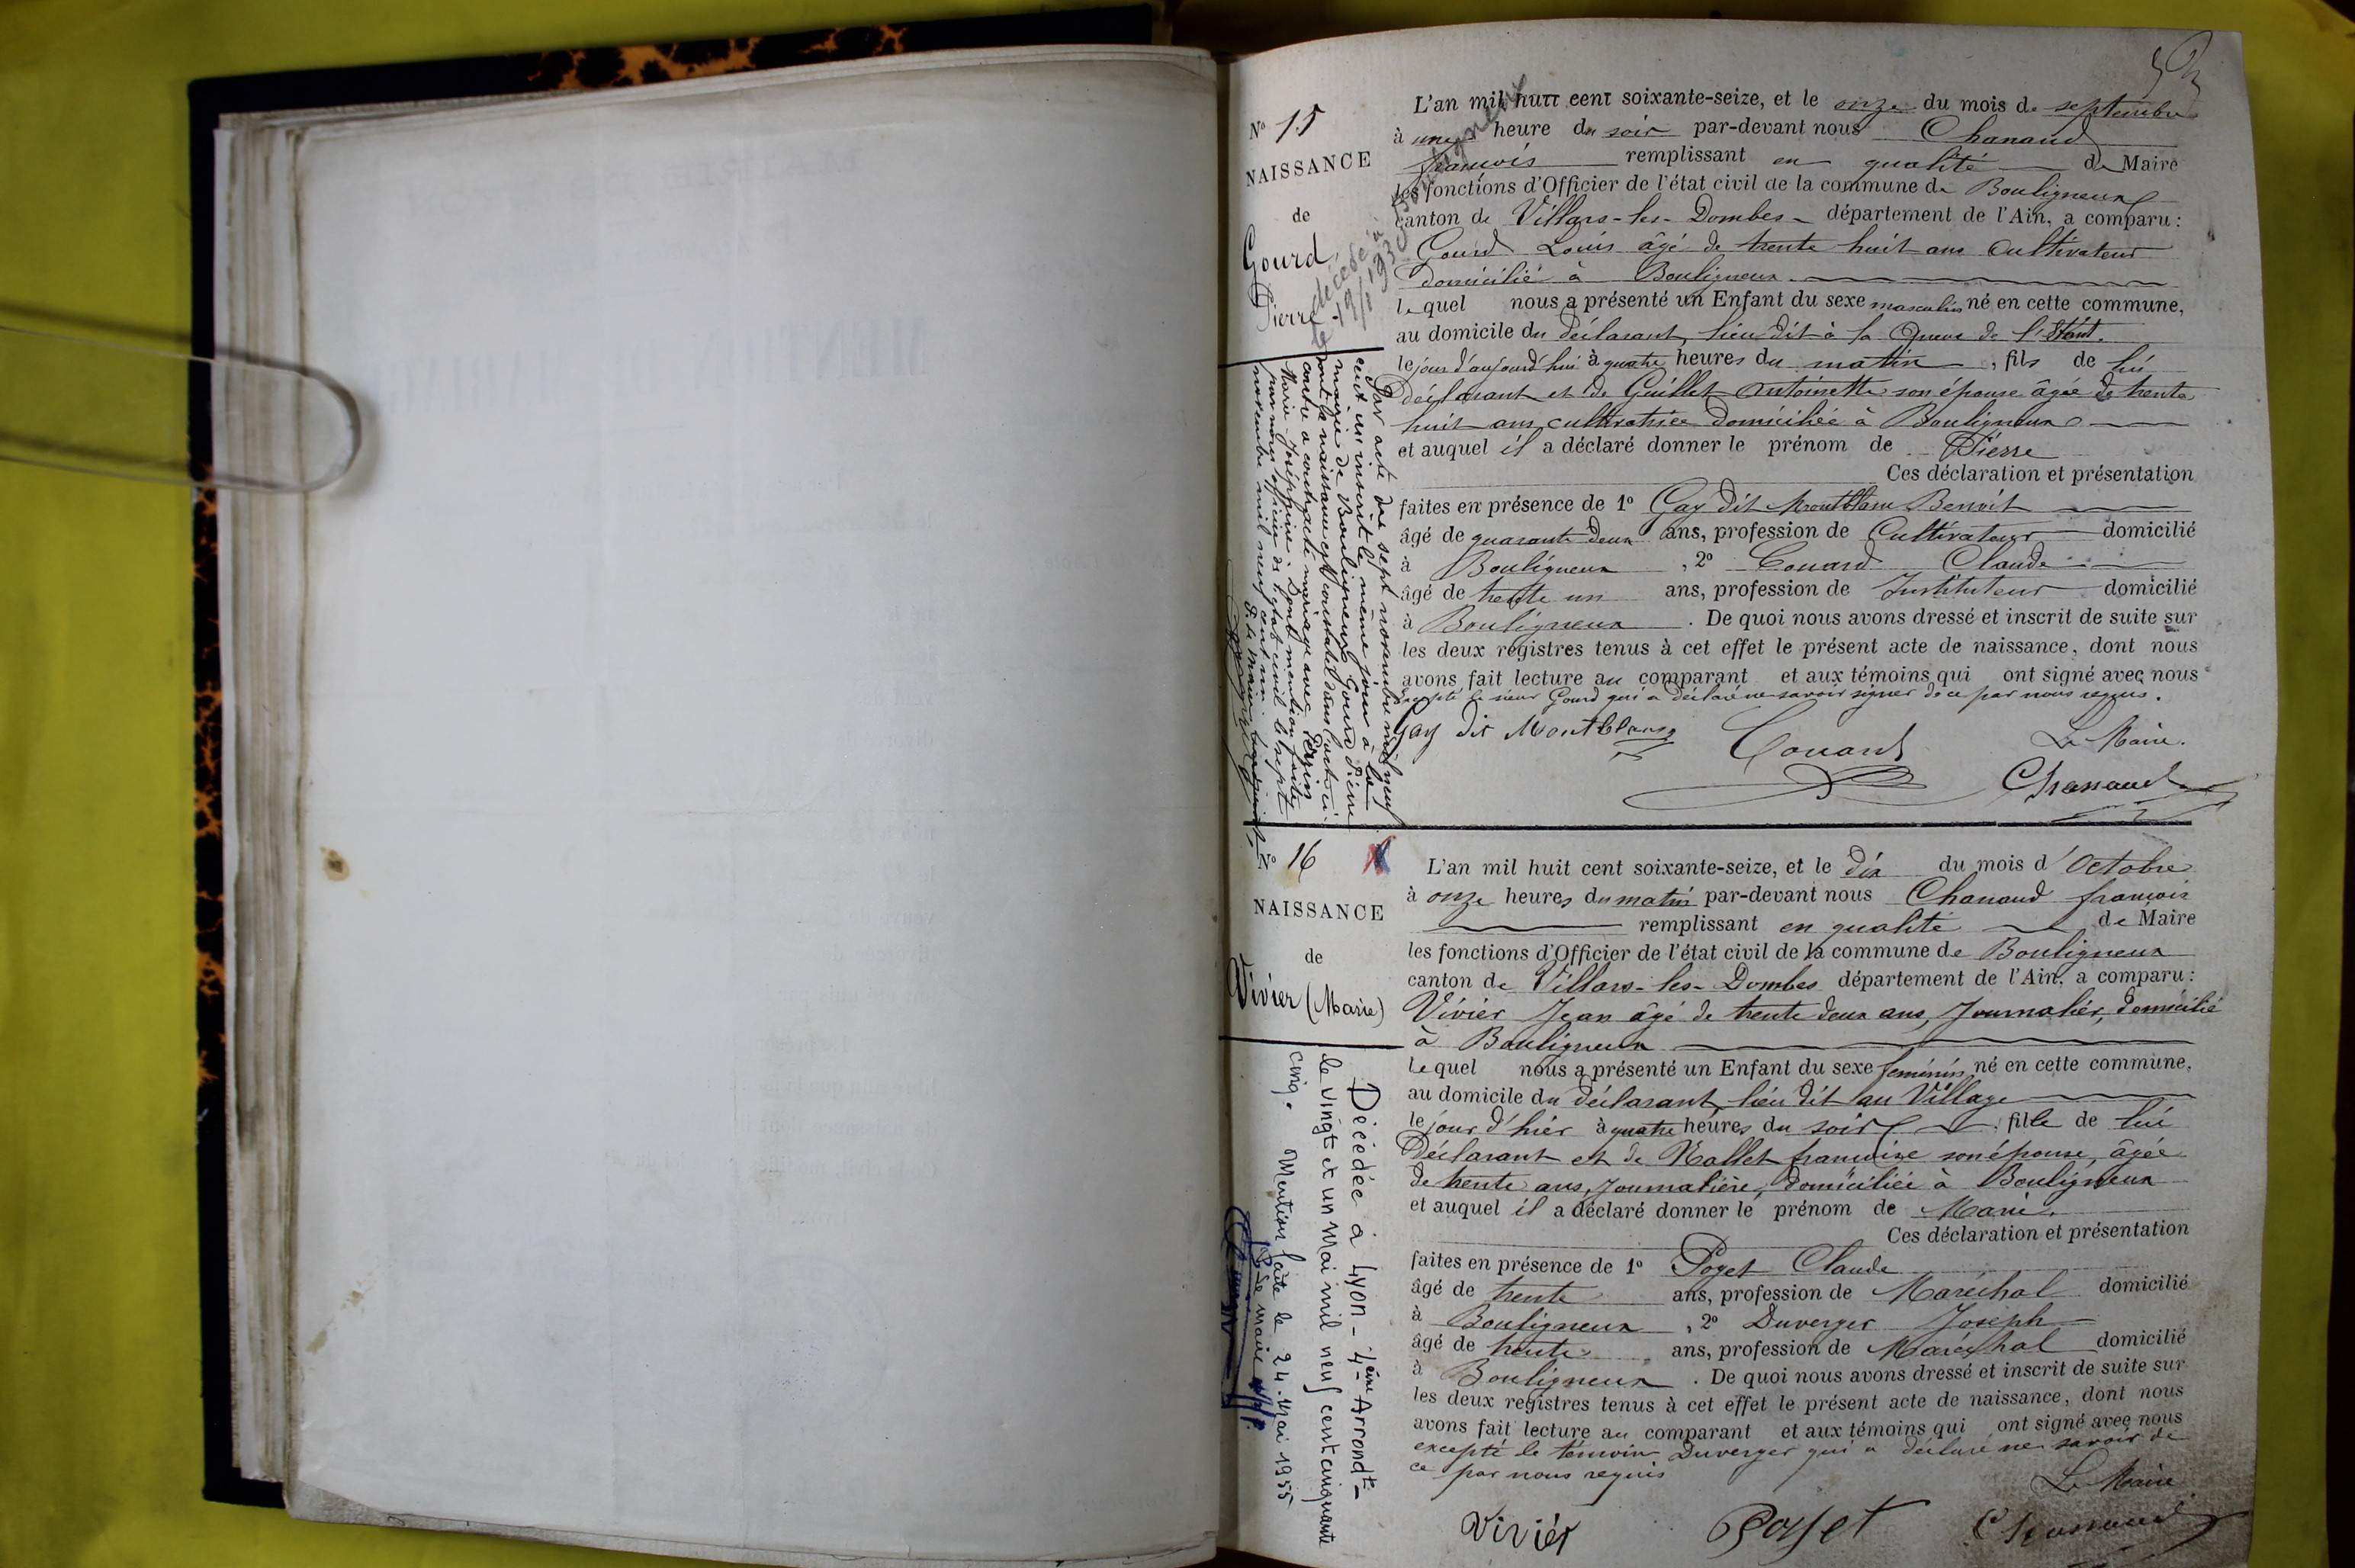 N° 15
NAISSANCE
de
Gourd
Pierre
décédé à Bouligneux
le 19/1 193
Par acte du sept novembre mil neuf
cent un inscrit le même jour à la
mairie de Bouligneux Gourd Pierre
dont la naissance est constatée dans l'acte ci-
contre a contracté mariage avec
Marie Joséphine. Dont mention faite
par nous officier de l'état civil le sept
novembre mil neuf cent un
L'an mil huit cent soixante-seize, et le onze du mois de septembre
à une heure du soir par-devant nous Chanaud
françois remplissant en qualité de Maire
les fonctions d'Officier de l'état civil de la commune de Bouligneux
canton de Villars-les-Dombes département de l'Ain, a comparu :
Gourd Louis âgé de trente huit ans Cultivateur
domicilié à Bouligneux
lequel nous a présenté un Enfant du sexe masculin né en cette commune,
au domicile du déclarant, lieu dit à la Queue de l'Etant.
le jour d'aujourd'hui à quatre heures du matin, fils de lui
déclarant et de Guillet Antoinette son épouse âgée de trente
huit ans, cultivatrice domiciliée à Bouligneux
et auquel il a déclaré donner le prénom de Pierre
Ces déclaration et présentation
faites en présence de 1° Gay dit Montblanc Benoit
âgé de quarante deux ans, profession de Cultivateur domicilié
à Bouligneux, 2° Couard Claude
âgé de trente un ans, profession de Instituteur domicilié
à Bouligneux. De quoi nous avons dressé et inscrit de suite sur
les deux registres tenus à cet effet le présent acte de naissance, dont nous
avons fait lecture au comparant et aux témoins qui ont signé avec nous
excepté le sieur Gourd qui a déclaré ne savoir signer de ce par nous requis.
Gay dit Montblanc Couard Le Maire.
Chanaud
N° 16
NAISSANCE
de
Vivier (Marie)
Décédée à Lyon - 4ème Arrondt -
le vingt et un Mai mil neuf cent cinquante
cinq. Mention faite le 24 Mai 1955
Le maire
L'an mil huit cent soixante-seize, et le dix du mois d'Octobre
à onze heures du matin par-devant nous Chanaud françois
remplissant en qualité de Maire
les fonctions d'Officier de l'état civil de la commune de Bouligneux
canton de Villars-les-Dombes département de l'Ain, a comparu :
Vivier Jean âgé de trente deux ans, Journalier, domicilié
à Bouligneux
lequel nous a présenté un Enfant du sexe feminin né en cette commune,
au domicile du déclarant, lieu dit au Village
le jour d'hier à quatre heures du soir, fille de lui
Déclarant et de Vallet francoise son épouse, âgée
de trente ans, Journalière, domiciliée à Bouligneux
et auquel il a déclaré donner le prénom de Marie.
Ces déclaration et présentation
faites en présence de 1° Poget Claude
âgé de trente ans, profession de Maréchal domicilié
à Bouligneux, 2° Duverger Joseph
âgé de trente ans, profession de Maréchal domicilié
à Bouligneux. De quoi nous avons dressé et inscrit de suite sur
les deux registres tenus à cet effet le présent acte de naissance, dont nous
avons fait lecture au comparant et aux témoins qui ont signé avec nous
excepté le témoin Duverger qui a déclaré ne savoir de
ce par nous requis
Le Maire
Vivier Poget Chanaud